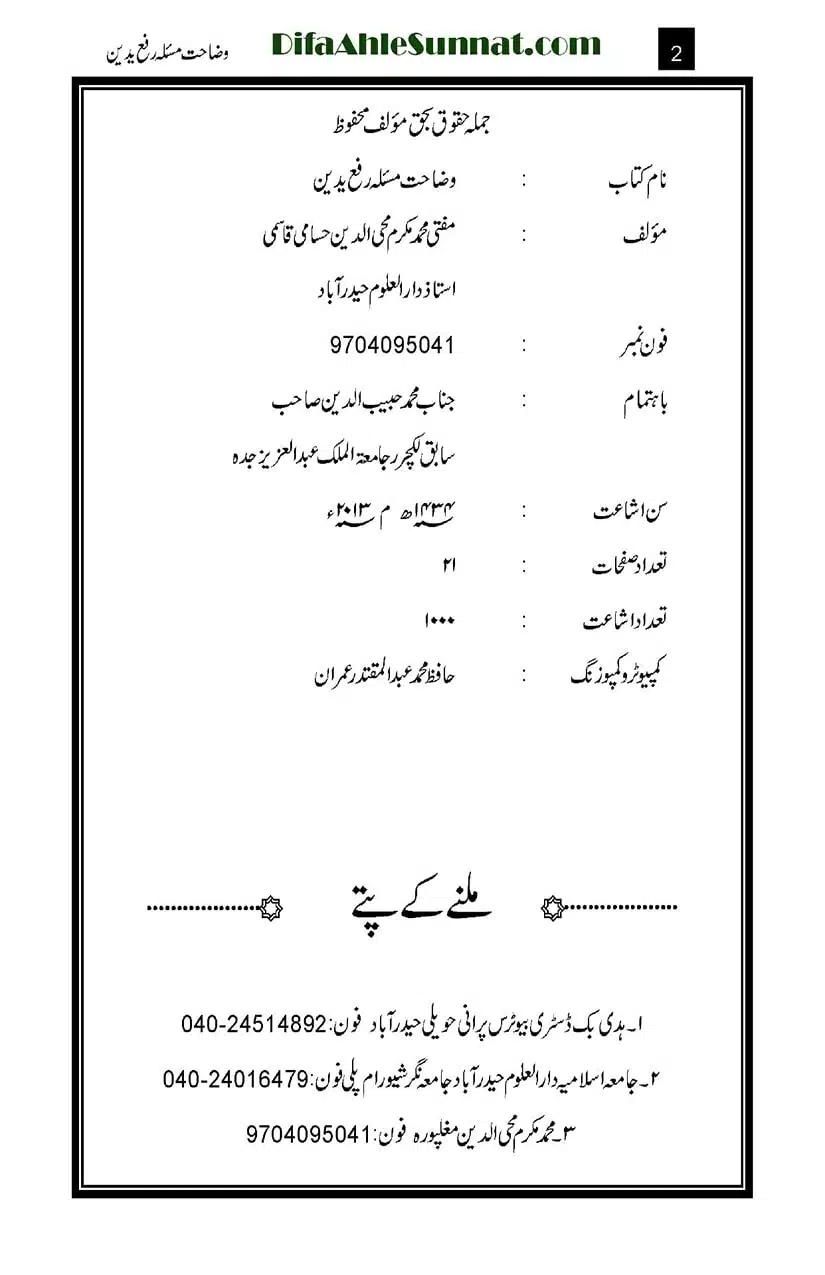 وضاحت مسئلہ رفع یدین DifaAhleSunnat.com 2
جملہ حقوق بحق مؤلف محفوظ
نام کتاب : وضاحت مسئلہ رفع یدین
مؤلف : مفتی محمد مکرم محی الدین حسامی قاسمی
استاذ دار العلوم حیدرآباد
فون نمبر : 9704095041
باہتمام : جناب محمد حبیب الدین صاحب
سابق لکچرر جامعۃ الملک عبدالعزیز جدہ
سن اشاعت : ۱۴۳۴ھ م ۲۰۱۳ء
تعداد صفحات : ۲۱
تعداد اشاعت : ۱۰۰۰
کمپیوٹر و کمپوزنگ : حافظ محمد عبدالمقتدر عمران
ملنے کے پتے
۱۔ ہدی بک ڈسٹری بیوٹرس پرانی حویلی حیدرآباد فون:040-24514892
۲۔ جامعہ اسلامیہ دارالعلوم حیدرآباد جامعہ نگر شیورام پلی فون:040-24016479
۳۔ محمد مکرم محی الدین مغلپورہ فون:9704095041